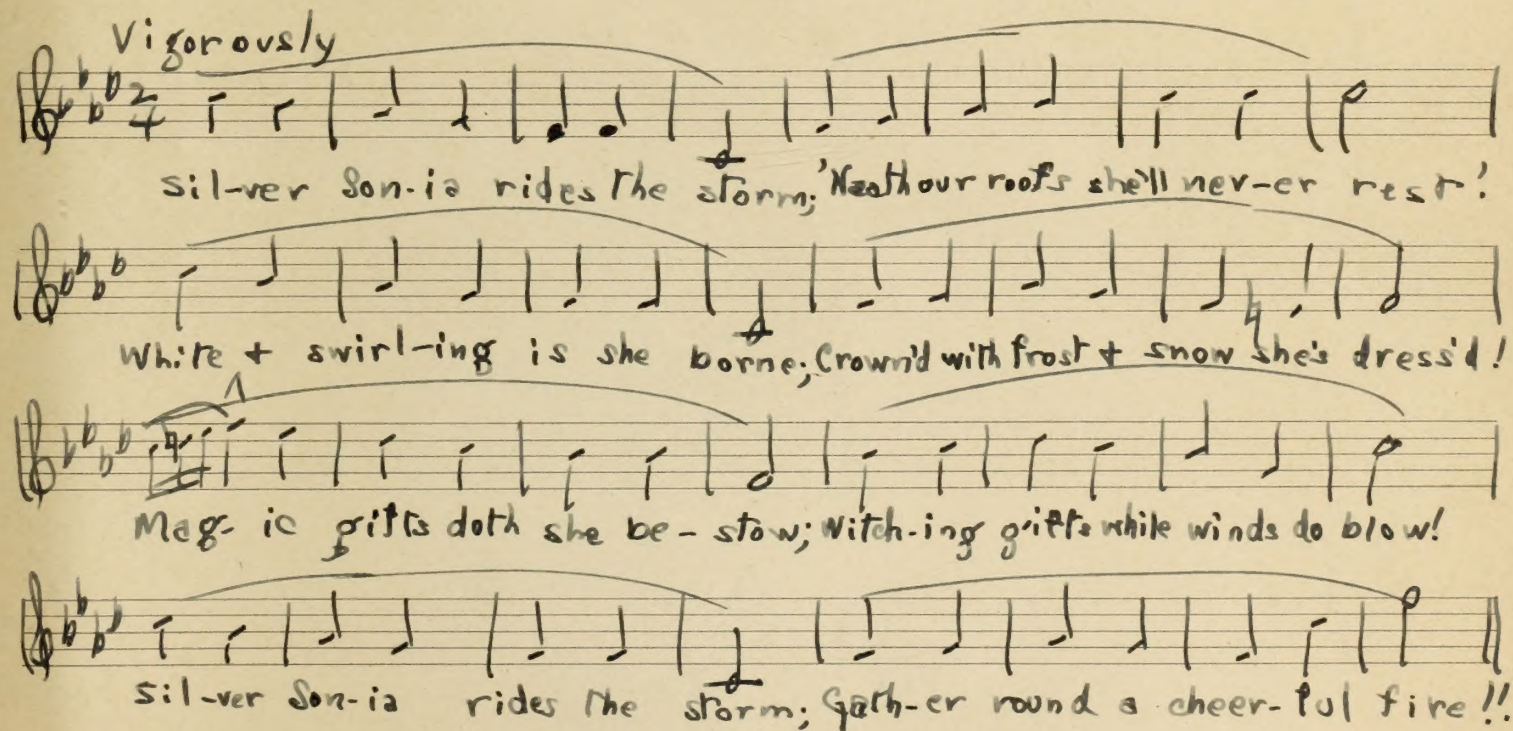 Vigorously
2/4
Sil-ver Son-ia rides the storm; 'Neath our roofs she'll nev-er rest!
White + swirl-ing is she borne; Crown'd with frost + snow she's dress'd!
Mag-ic gifts doth she be-stow; Witch-ing gifts while winds do blow!
Sil-ver Son-ia rides the storm; Gath-er round a cheer-ful fire!!